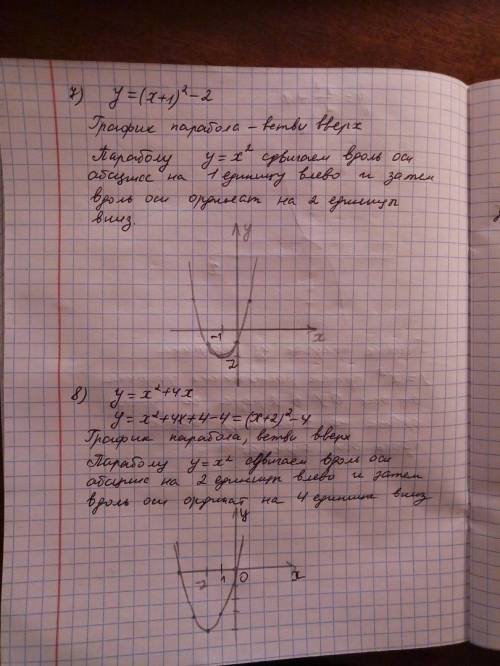 7) y = (x+1)² - 2
График парабола - ветви вверх
Параболу y = x² сдвигаем вдоль оси
абсцисс на 1 единицу влево и затем
вдоль оси ординат на 2 единицы
вниз.
y
-1
x
-2
8) y = x² + 4x
y = x² + 4x + 4 - 4 = (x+2)² - 4
График парабола, ветви вверх
Параболу y = x² сдвигаем вдоль оси
абсцисс на 2 единицы влево и затем
вдоль оси ординат на 4 единицы вниз
y
-2 1 0 x